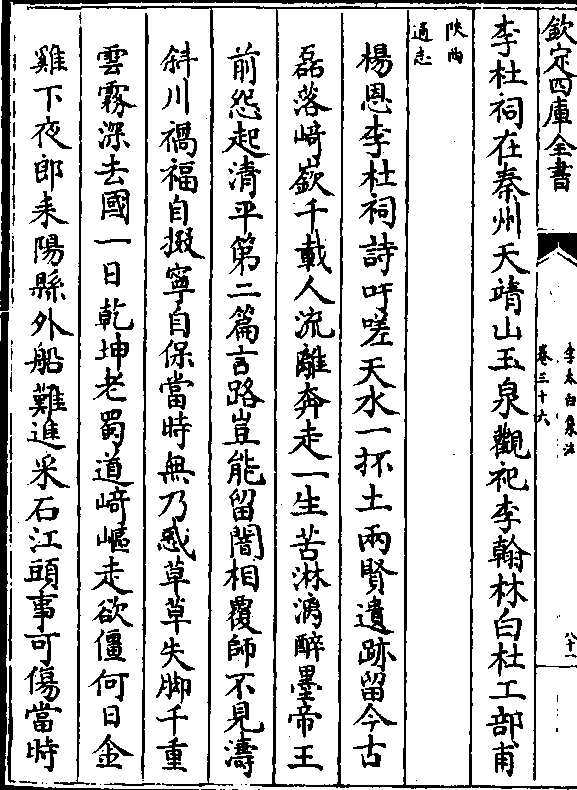 欽定四庫全書
李太白集注
卷三十六
八十一
李杜祠在秦州天靖山玉泉觀祀李翰林白杜工部甫
陜西
通志
楊恩李杜祠詩吁嗟天水一抔土兩賢遺跡留今古
磊落﨑嶔千載人流離奔走一生苦淋漓醉墨帝王
前怨起清平第二篇言路豈能留闇相覆師不見濤
斜川禍福自掇寧自保當時無乃惑草草失脚千重
雲霧深去國一日乾坤老蜀道﨑嶇走欲僵何日金
雞下夜郎耒陽縣外船難進采石江頭事可傷當時